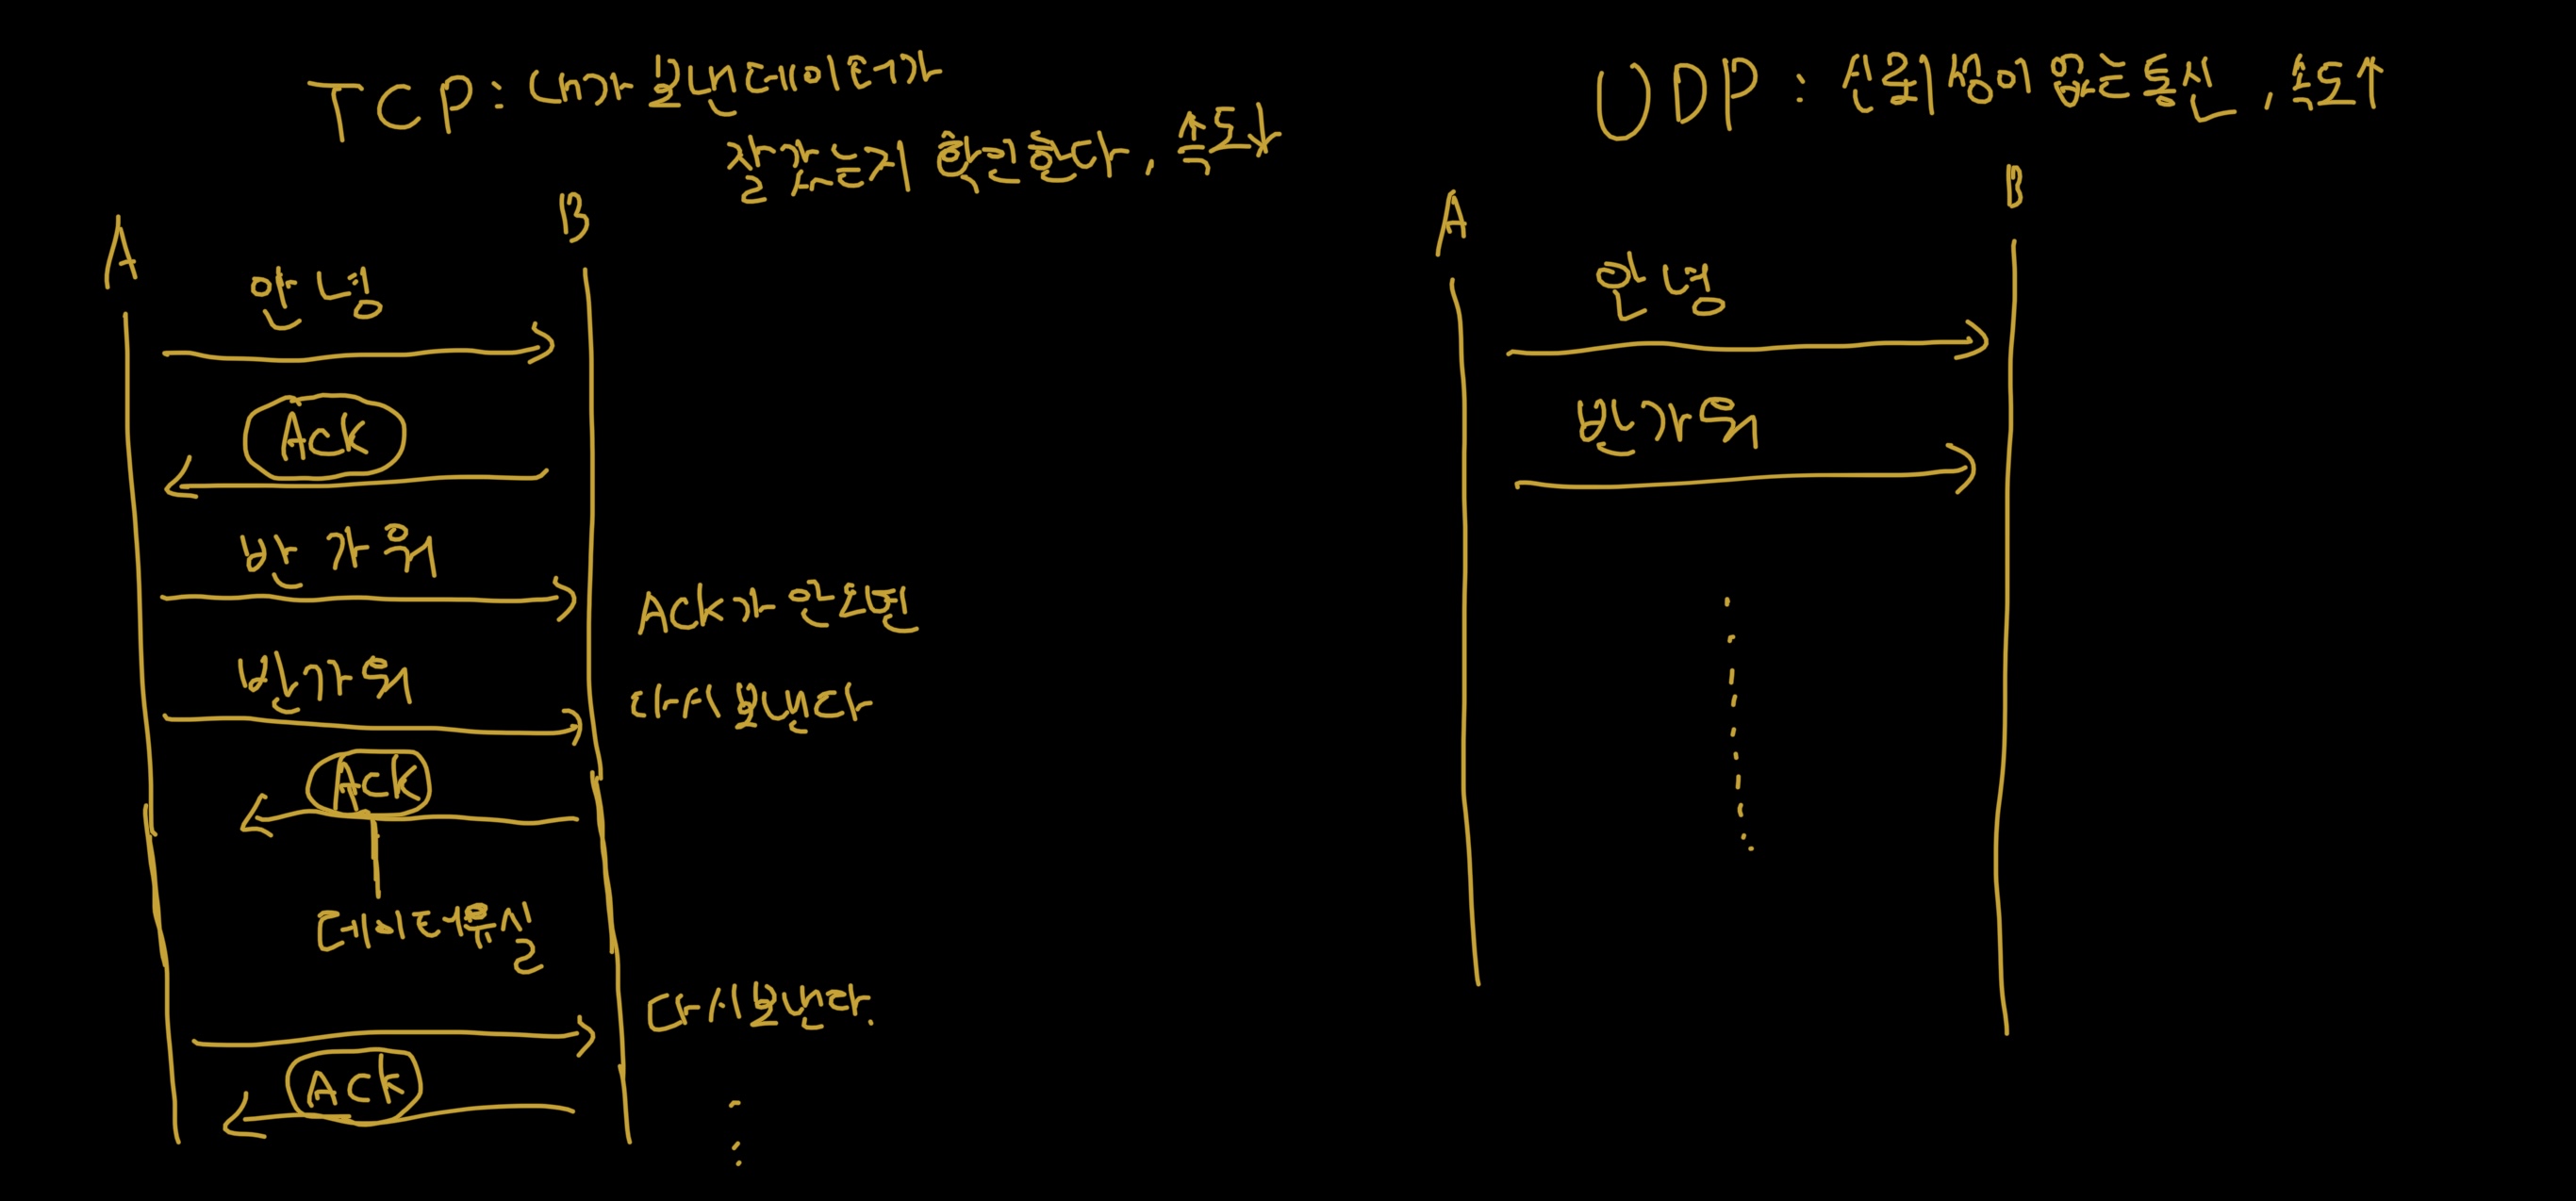 TCP : 내가 보낸 데이터가
잘 갔는지 확인한다, 속도↓
A
B
안녕
Ack
반가워
ACK가 안오면
반가워
다시 보낸다
Ack
데이터 유실
다시 보낸다.
Ack
UDP : 신뢰성이 없는 통신, 속도↑
A
B
안녕
반가워